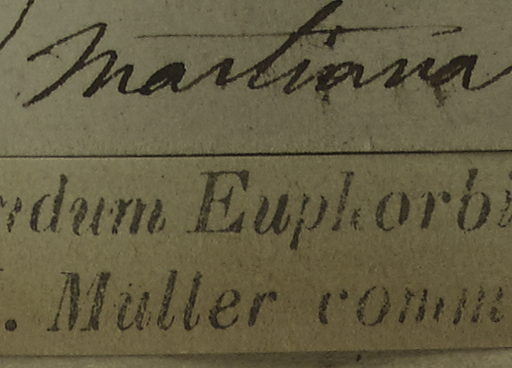 Martiana
ndum Euphorbi
. Muller comm